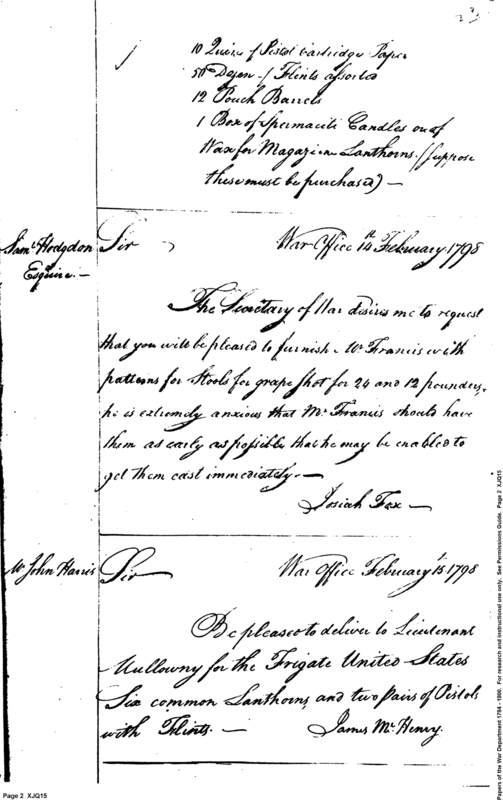 10 Quires of Pistol Cartridge Paper
50 Dozen of Flints assorted
12 Pouch Barrels
1 Box of Spermaciti Candles or of
Wax for Magazine Lanthorns. (suppose
these must be purchased) —
Saml. Hodgdon
Esquire. —
Sir
War Office 14th February 1798
The Secretary of War desires me to request
that you will be pleased to furnish Mr. Francis with
patterns for Stools for grape shot for 24 and 12 pounders,
he is extremly anxious that Mr. Francis should have
them as early as possible that he may be enabled to
get them cast immediately. —
Josiah Fox —
Mr John Harris
Sir
War Office February 15. 1798
Be pleased to deliver to Lieutenant
Mullowny for the Frigate United States
Six common Lanthorns, and two pairs of Pistols
with Flints. —
James McHenry.
Page 2 XJQ15
Papers of the War Department 1784 - 1800. For research and instructional use only. See Permissions Guide. Page 2 XJQ15